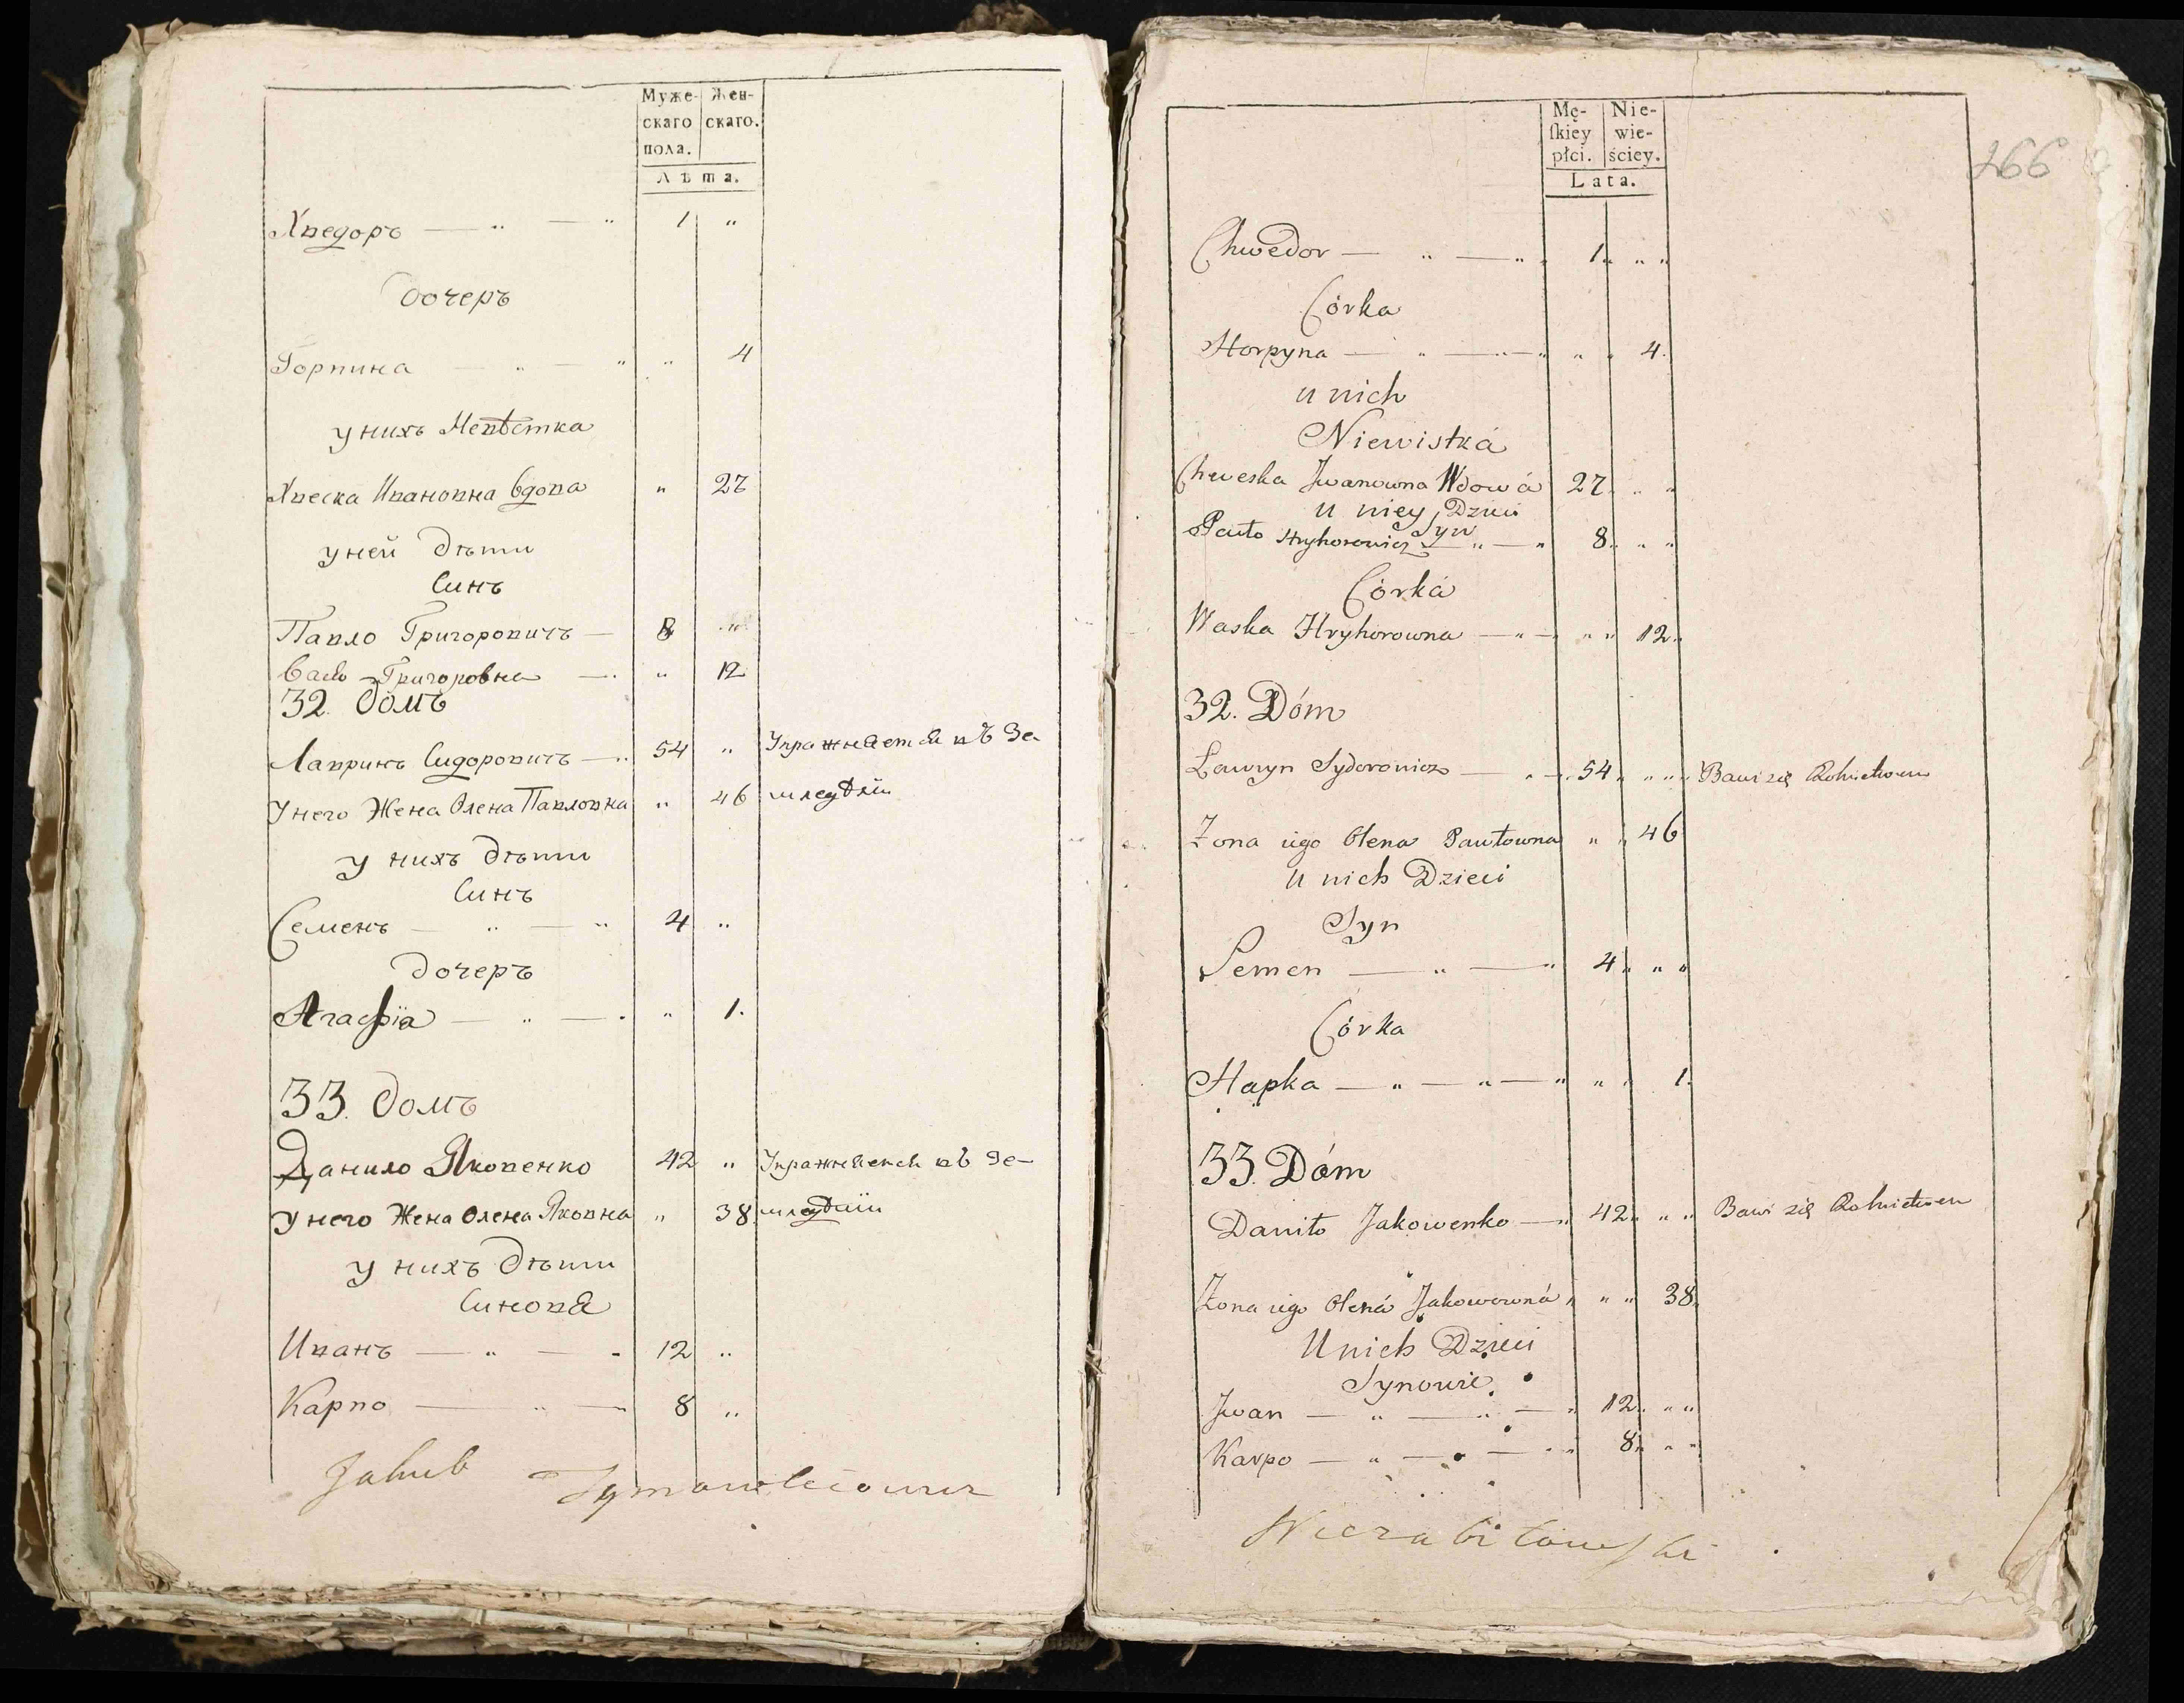 Муже- Жен-
скаго скаго.
пола.
Лѣта.
Хведоръ — „ — „ 1 „
дочеръ
Горпина — „ — „ „ 4
у нихъ Невѣстка
Хвеска Ивановна вдова „ 27
у ней дѣти
Синъ
Павло Григоровичъ — 8 „
Григоровна — „ 12
32. домъ
Лавринъ Сидоровичъ — „ 54 „ Упражняется въ Зе
У него Жена Олена Павловна „ 46 мледѣліи
у нихъ дѣти
Синъ
Семенъ — „ — „ 4 „
дочеръ
Агафія — „ — „ 1.
33. домъ
Данило Яковенко 42 „ Упражняется въ Зе-
у него Жена Олена Яковна „ 38 мледѣліи
у нихъ дѣти
Синовя
Иванъ — „ — 12 „
Карпо — „ — 8 „
Jakub
266
Mę- Nie-
ſkiey wie-
płci. ściey.
Lata.
Chwedor — „ — „ 1 „ „
Córka
Horpyna — „ — „ — „ „ „ 4.
u nich
Niewistká
Chweska Jwanowna Wdowá 27 „ „
u niey Dzieci
Syn
Pawło Hryhorowicz — „ — „ 8 „ „
Córká
Waska Hryhorowna — „ — „ „ 12 „
32. Dóm
Ławryn Sydorowicz — „ — 54 „ „ „ Bawi się Rolnictwem
Żona iego Olena Pawłowna „ „ 46
u nich Dzieci
Syn
Semen — „ — „ 4 „ „
Córka
Hapka — „ — „ — „ „ „ 1.
33. Dóm
Daniło Jakowenko — „ 42 „ „ „ Bawi się Rolnictwem
Żona iego Olená Jakowowná „ „ „ 38 „
U nich Dzieci
Synowie
Jwan — „ — „ — „ 12 „ „
Karpo — „ — „ — „ 8 „ „